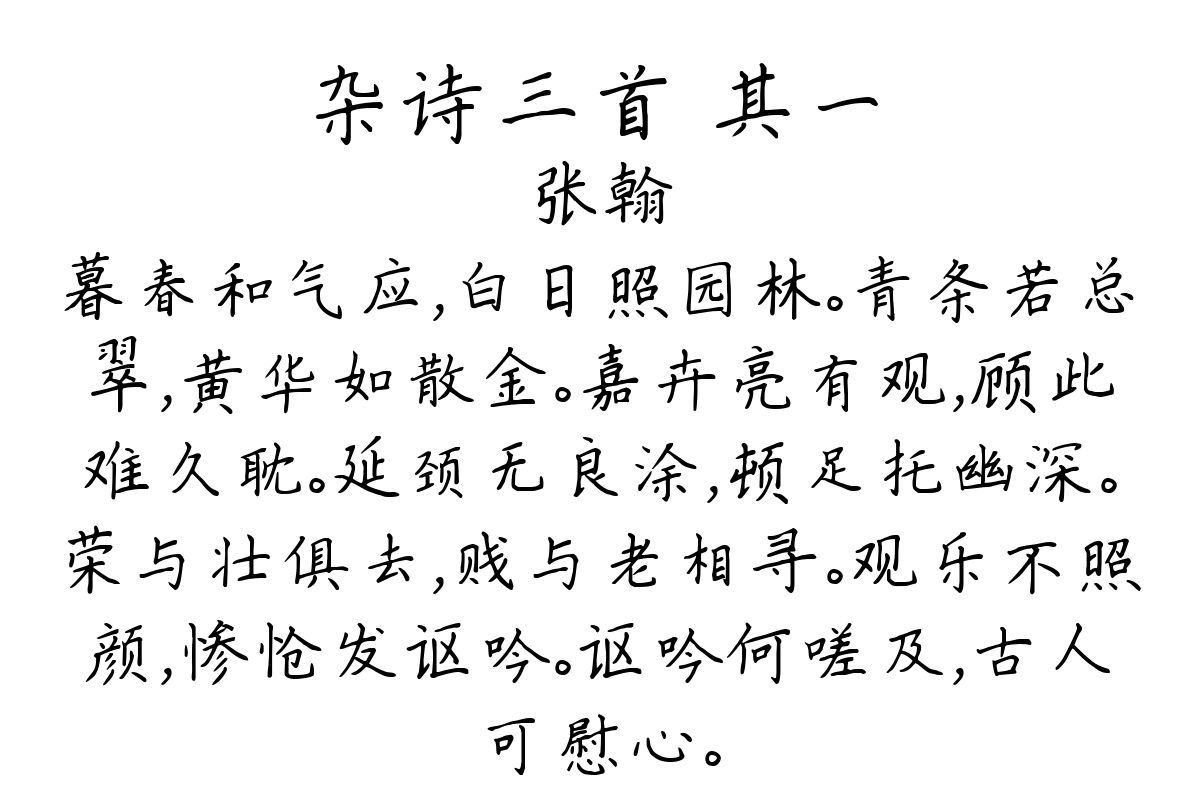 杂诗三首 其一
张翰
暮春和气应,白日照园林。青条若总
翠,黄华如散金。嘉卉亮有观,顾此
难久耽。延颈无良涂,顿足托幽深。
荣与壮俱去,贱与老相寻。观乐不照
颜,惨怆发讴吟。讴吟何嗟及,古人
可慰心。